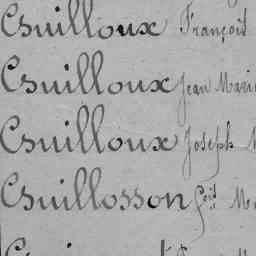 Guilloux François
Guilloux Jean Marie
Guilloux Joseph M
Guillosson